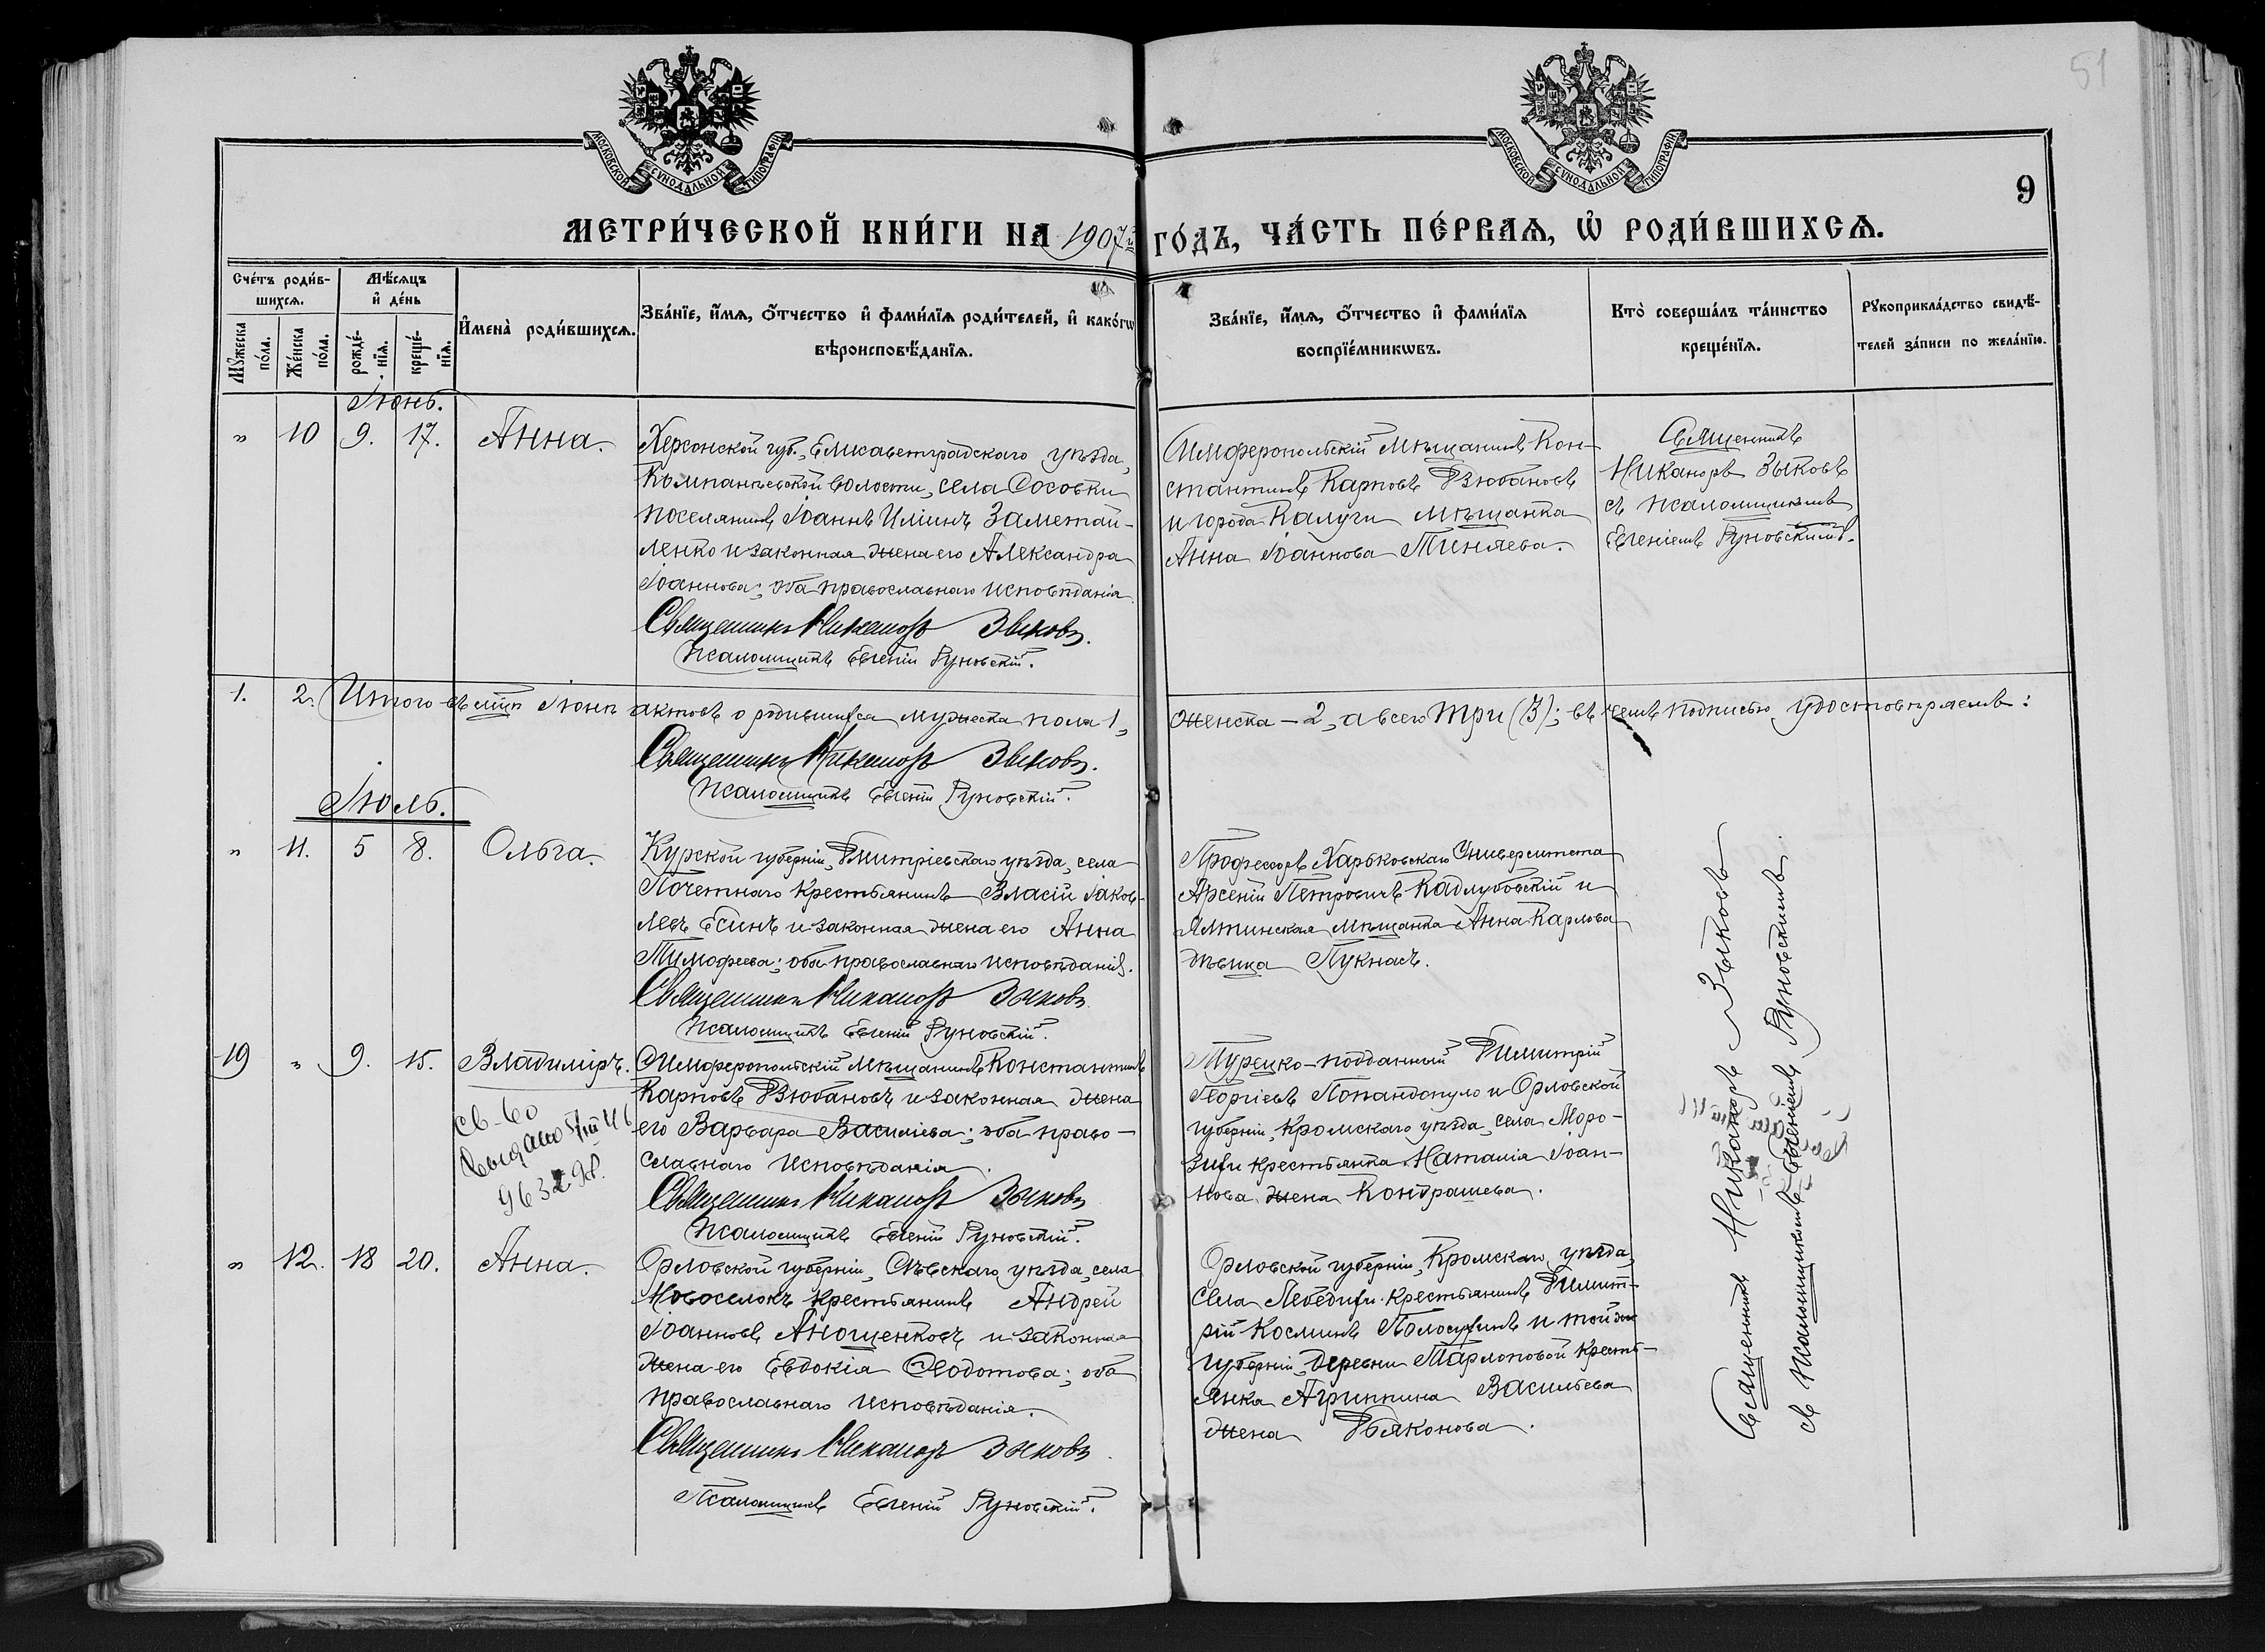 51
МОСКОВСКОЙ СѴНОДАЛЬНОЙ ТИПОГРАФІИ
МОСКОВСКОЙ СѴНОДАЛЬНОЙ ТИПОГРАФІИ
9
МЕТРИ́ЧЕСКОЙ КНИ́ГИ НА 1907й ГО́ДЪ, ЧА́СТЬ ПЕ́РВАЯ, Ѽ РОДИ́ВШИХСѦ.
Сче́тъ роди́в-
шихсѧ.
Мꙋжеска
по́ла.
Же́нска
по́ла.
Мѣ́сѧцъ
и҆ де́нь
рожде́-
нїѧ.
креще́-
нїѧ.
И҆мена̀ роди́вшихсѧ.
Зва́нїе, и҆́мѧ, ѻ҆́тчество и҆ фами́лїѧ роди́телей, и҆ како́гѡ
вѣроисповѣ́данїѧ.
Зва́нїе, и҆́мѧ, ѻ҆́тчество и҆ фами́лїѧ
воспрїе́мникѡвъ.
Кто̀ соверша́лъ та́инство
креще́нїѧ.
Рꙋкоприкла́дство свидѣ́-
телей за́писи по жела́нїю.
Іюнь.
" 10 9. 17. Анна.
Херсонской губ., Елисаветградскаго уѣзда,
Компанѣевской волости, села Сосовки
поселянинъ Іоаннъ Илiинъ Заметай-
ленко и законная жена его Александра
Іоаннова; оба православнаго исповѣданія.
Священникъ Никаноръ Зыковъ.
Псаломщикъ Евгеній Руновскій.
Симферопольскій мѣщанинъ Кон-
стантинъ Карповъ Дзюбановъ
и города Калуги мѣщанка
Анна Іоаннова Тиняева.
Священникъ
Никаноръ Зыковъ
съ псаломщикомъ
Евгеніемъ Руновскимъ.
1. 2. Итого въ мцѣ Іюнѣ актовъ о родившихся мужеска пола 1, женска – 2, а всего три (3); въ чемъ подписью удостовѣряемъ:
Священникъ Никаноръ Зыковъ.
Псаломщикъ Евгеній Руновскій.
Іюль.
" 11. 5 8. Ольга.
Курской губерніи, Дмитріевскаго уѣзда, села
Почетнаго крестьянинъ Власій Іаков-
левъ Есинъ и законная жена его Анна
Тимофеева; оба православнаго исповѣданія.
Священникъ Никаноръ Зыковъ
Псаломщикъ Евгеній Руновскій.
Профессоръ Харьковскаго Университета
Арсеній Петровичъ Кадлубовскій и
Ялтинская мѣщанка Анна Карлова
дѣвица Пукнасъ.
19 " 9. 15. Владиміръ.
Св-во
выдано 5/III 46
Симферопольскій мѣщанинъ Константинъ
Карповъ Дзюбановъ и законная жена
его Варвара Василіева; оба право-
славнаго исповѣданія.
Священникъ Никаноръ Зыковъ
Псаломщикъ Евгеній Руновскій.
Турецко-подданный Димитрій
Георгіевъ Попандопуло и Орловской
губерніи, Кромскаго уѣзда, села Моро-
зихи крестьянка Наталія Іоан-
нова жена Кондрашева.
" 12. 18 20. Анна.
Орловской губерніи, Сѣвскаго уѣзда, села
Новоселокъ крестьянинъ Андрей
Іоанновъ Анощенковъ и законная
жена его Евдокія Ѳеодотова; оба
православнаго исповѣданія.
Священникъ Никаноръ Зыковъ.
Псаломщикъ Евгеній Руновскій.
Орловской губерніи, Кромскаго уѣзда,
села Лебедихи крестьянинъ Димит-
рій Косминъ Полосухинъ и той же
губерніи, деревни крестья-
янка Агриппина Васильева
жена Дьяконова.
Священникъ Никаноръ Зыковъ
съ псаломщикомъ Евгеніемъ Руновскимъ.